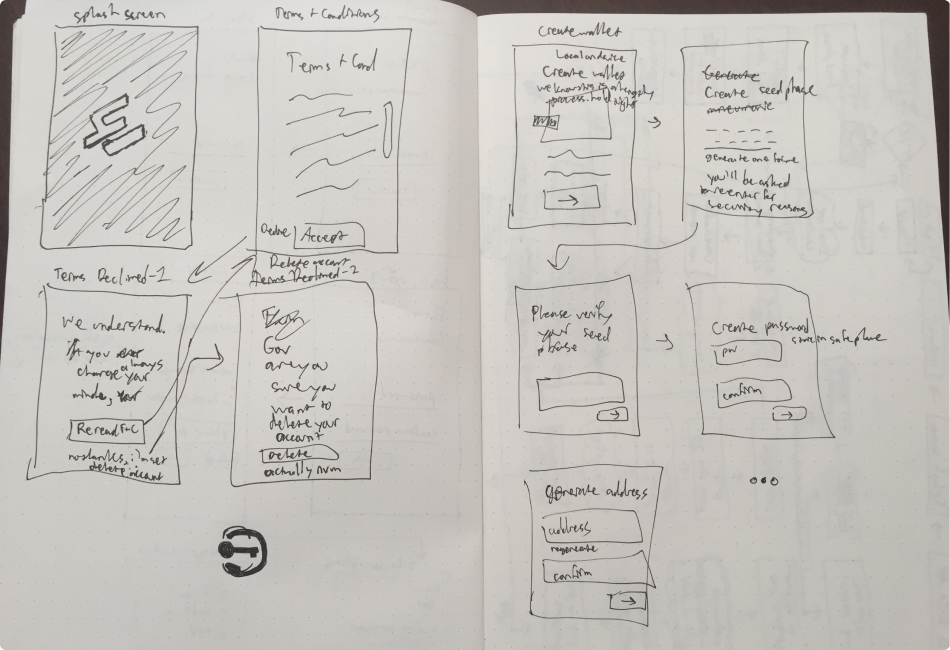 splash screen
Terms + Conditions
Terms + Cond
Decline
Accept
Terms Declined-1
We understand.
always
change your
Reread T+C
delete account
Delete account
Terms Declined-2
are you
sure you
want to
delete your
account
Delete
actually nvm
Create wallet
Local on device
Create wallet
we know this is a lengthy
process. hold tight
Generate
Create seed phrase
mneumonic
generate one time
you'll be asked
to reenter for
security reasons
Please verify
your seed
phrase
Create password
store in safe place
pw
confirm
generate address
address
regenerate
confirm